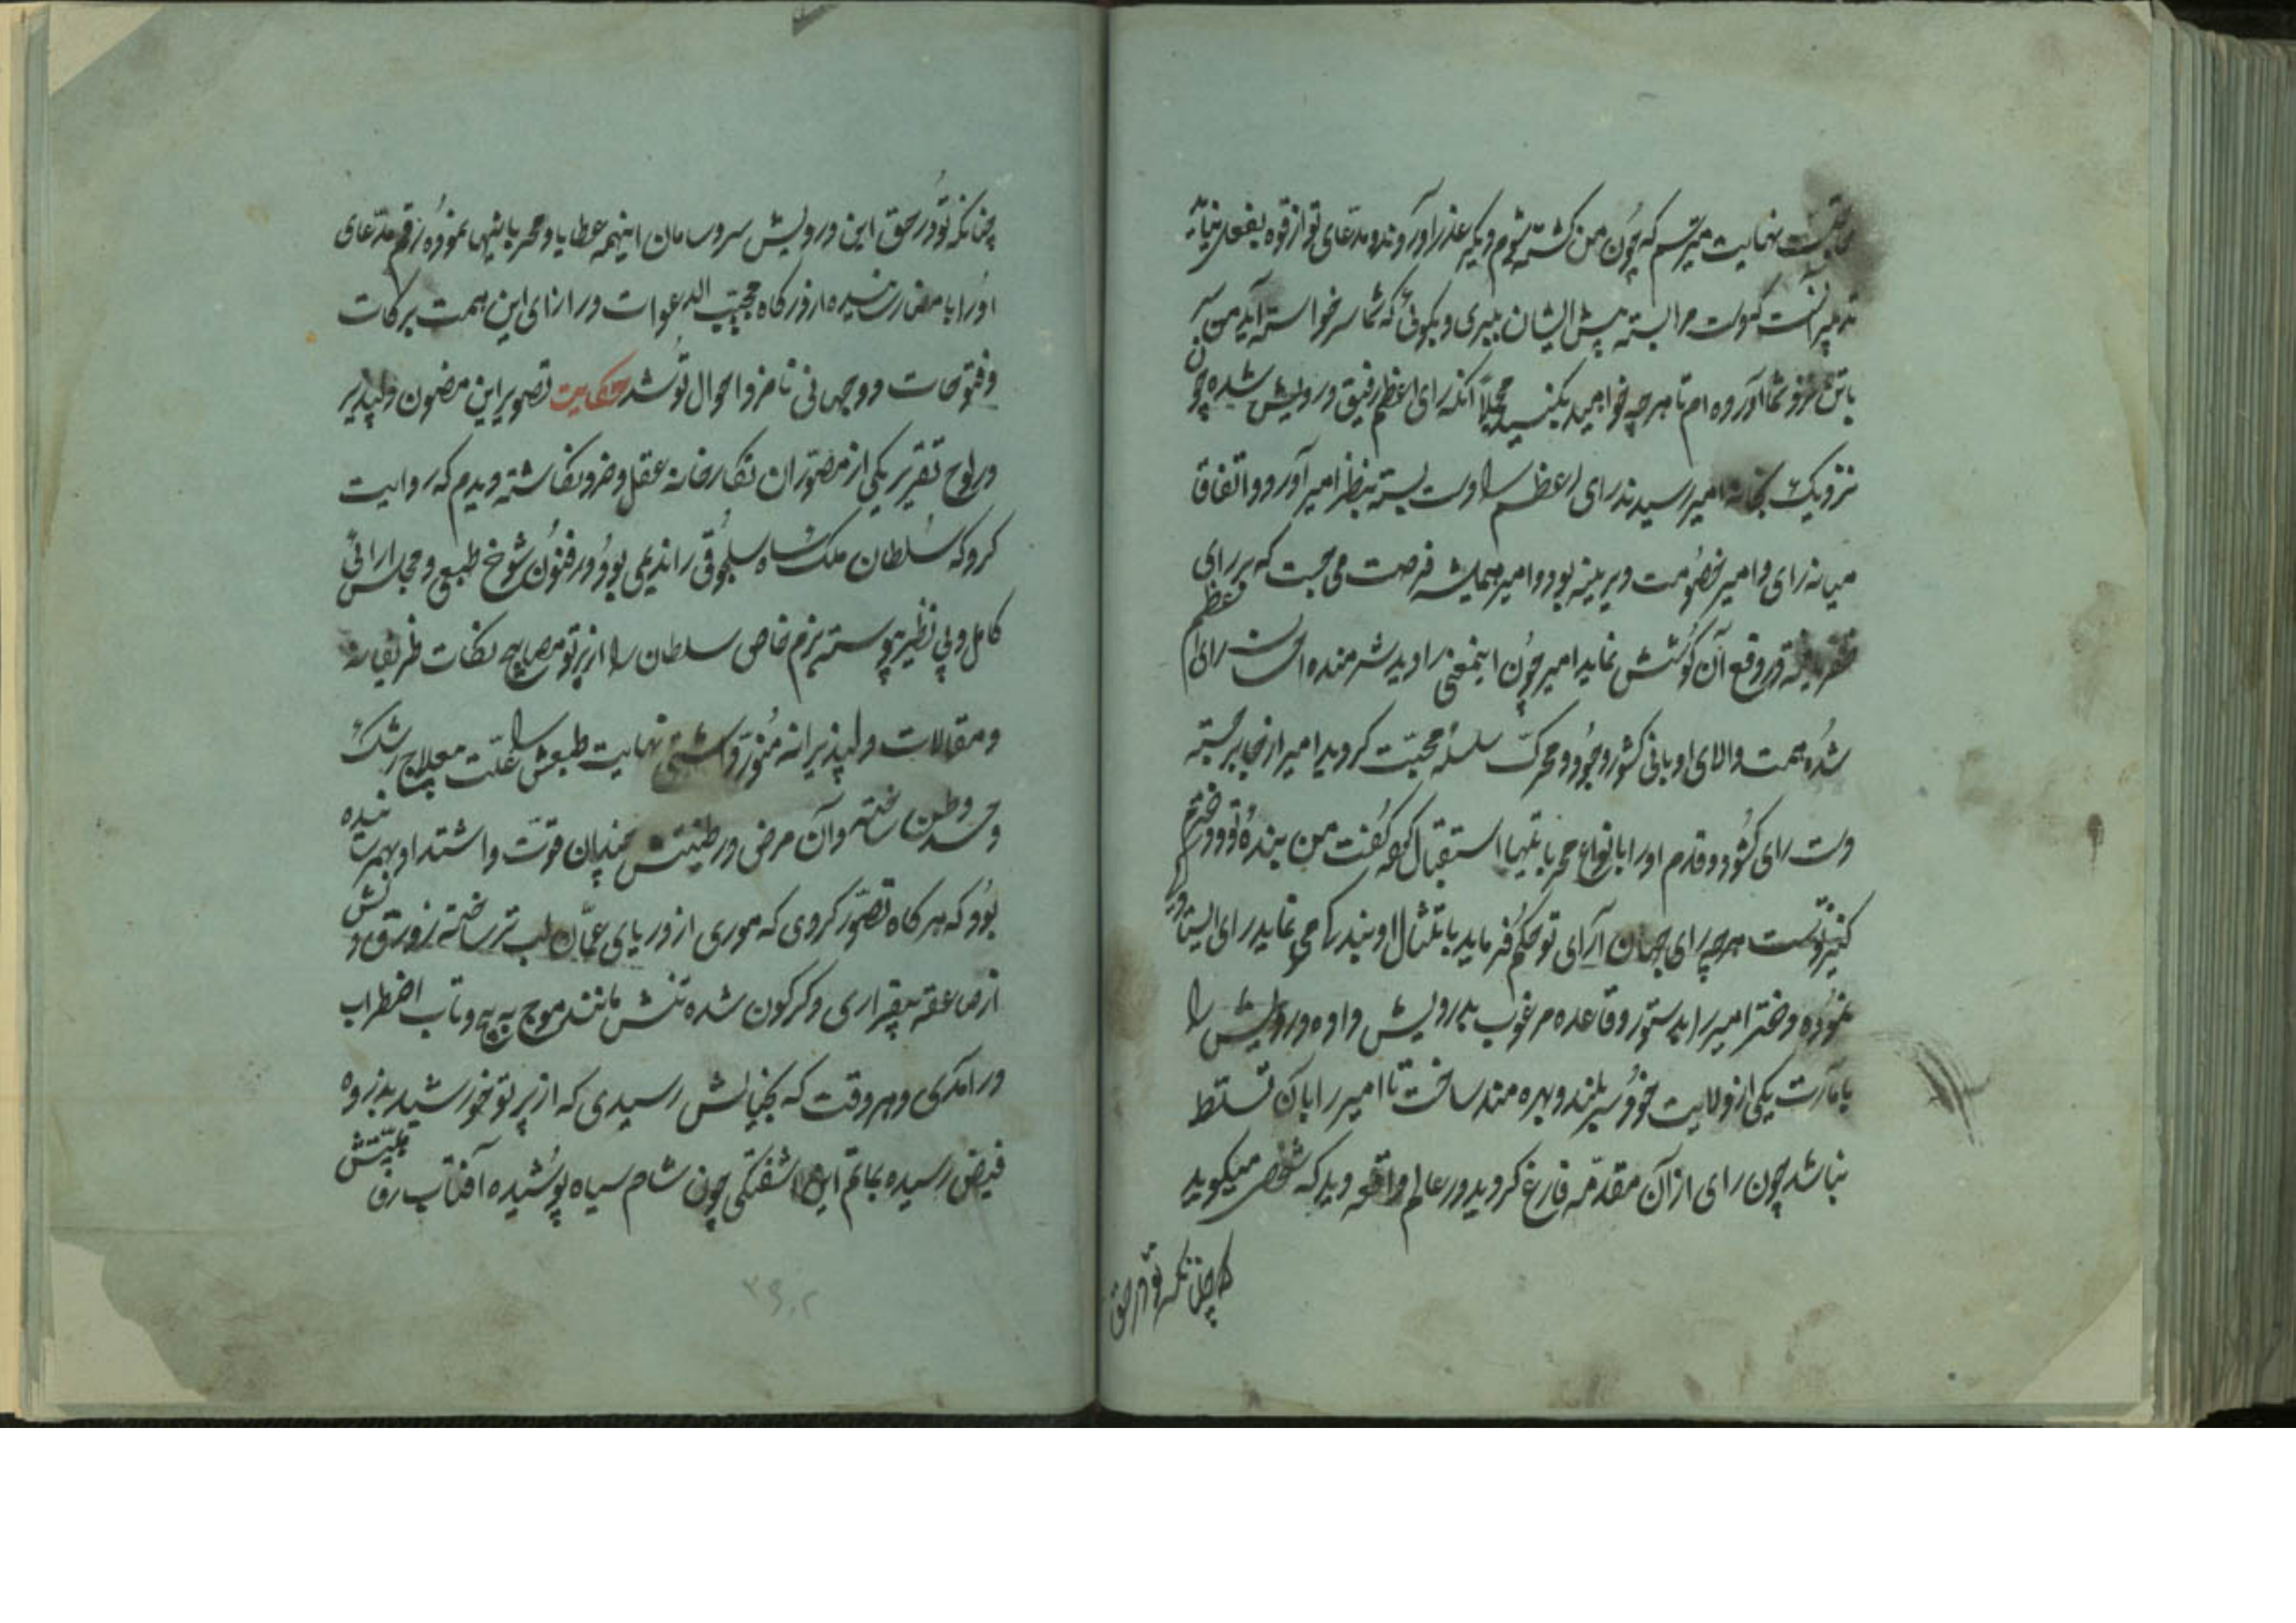 نهایت میترسم که چون من کشته شوم دیگر عذر آورند و مدعای تو از قوه بفعل نیاید
تدبیر آنست که دست مرا بسته پیش ایشان ببری و بگوئی که شما سر خواسته‌اید من سر
با تن نزد شما آورده‌ام تا هر چه خواهید بکنید مجملاً آنکه رای اعظم رفیق درویش شده چون
نزدیک بخانه امیر رسیدند رای اعظم را دست بسته بنظر امیر آورد و اتفاقا
میانه رای و امیر خصومت دیرینه بود و امیر همیشه فرصت می جست که بر رای اعظم
در وقع آن کوشش نماید امیر چون اینمعنی را دید شرمنده احسان رای
شده همت والای او بانی کشور وجود و محرک سلسله محبت گردید امیر از جا برجسته
دست رای کشود و قدم او را بانواع مهربانیها استقبال کرده گفت من بنده تو و دخترم
کنیز تست هر چه رای جهان آرای تو حکم فرماید بامتثال او بندگی می نماید رای
نموده دختر امیر را بدستور و قاعده مرغوب بدرویش داده درویش را
بامارت یکی از ولایت خود سربلند و بهره‌مند ساخت تا امیر را با آن تسلط
نباشد چون رای از آن مقدمه فارغ گردید در عالم واقعه دید که شخصی میگوید
که چنانکه تو در حق
چنانکه تو در حق این درویش سر و سامان اینهمه عطایا و مهربانیها نموده رقم مدعای
او را بامضا رسانیده از درگاه مجیب الدعوات در ازای این همت برکات
و فتوحات دو جهانی نامزد احوال تو شد حکایت تصویر این مضمون دلپذیر
در لوح تقریر یکی از مصوران نگارخانه عقل و خرد نگاشته دیدم که روایت
کرد که سلطان ملک شاه سلجوقی را ندیمی بود در فنون شوخ طبعی و مجلس آرائی
کامل و بی نظیر پیوسته بزم خاص سلطان را از پرتو مصابیح نکات ظریفانه
و مقالات دلپذیرانه منور داشتی نهایت طبعش را علت معلاج رشک
و حسد وطن ساخته و آن مرض در طینتش چندان قوت داشت که او بهمرسانیده
بود که هر گاه تصور کردی که موری از دریای عمان لب تر ساخته زورق دلش
از صاعقه بیقراری دگرگون شده تنش مانند موج به پیچ و تاب اضطراب
درآمدی و هر وقت که بخیالش رسیدی که از پرتو خورشید بذروه
فیض رسیده بماتم این آشفتگی چون شام سیاه پوشیده آفتاب